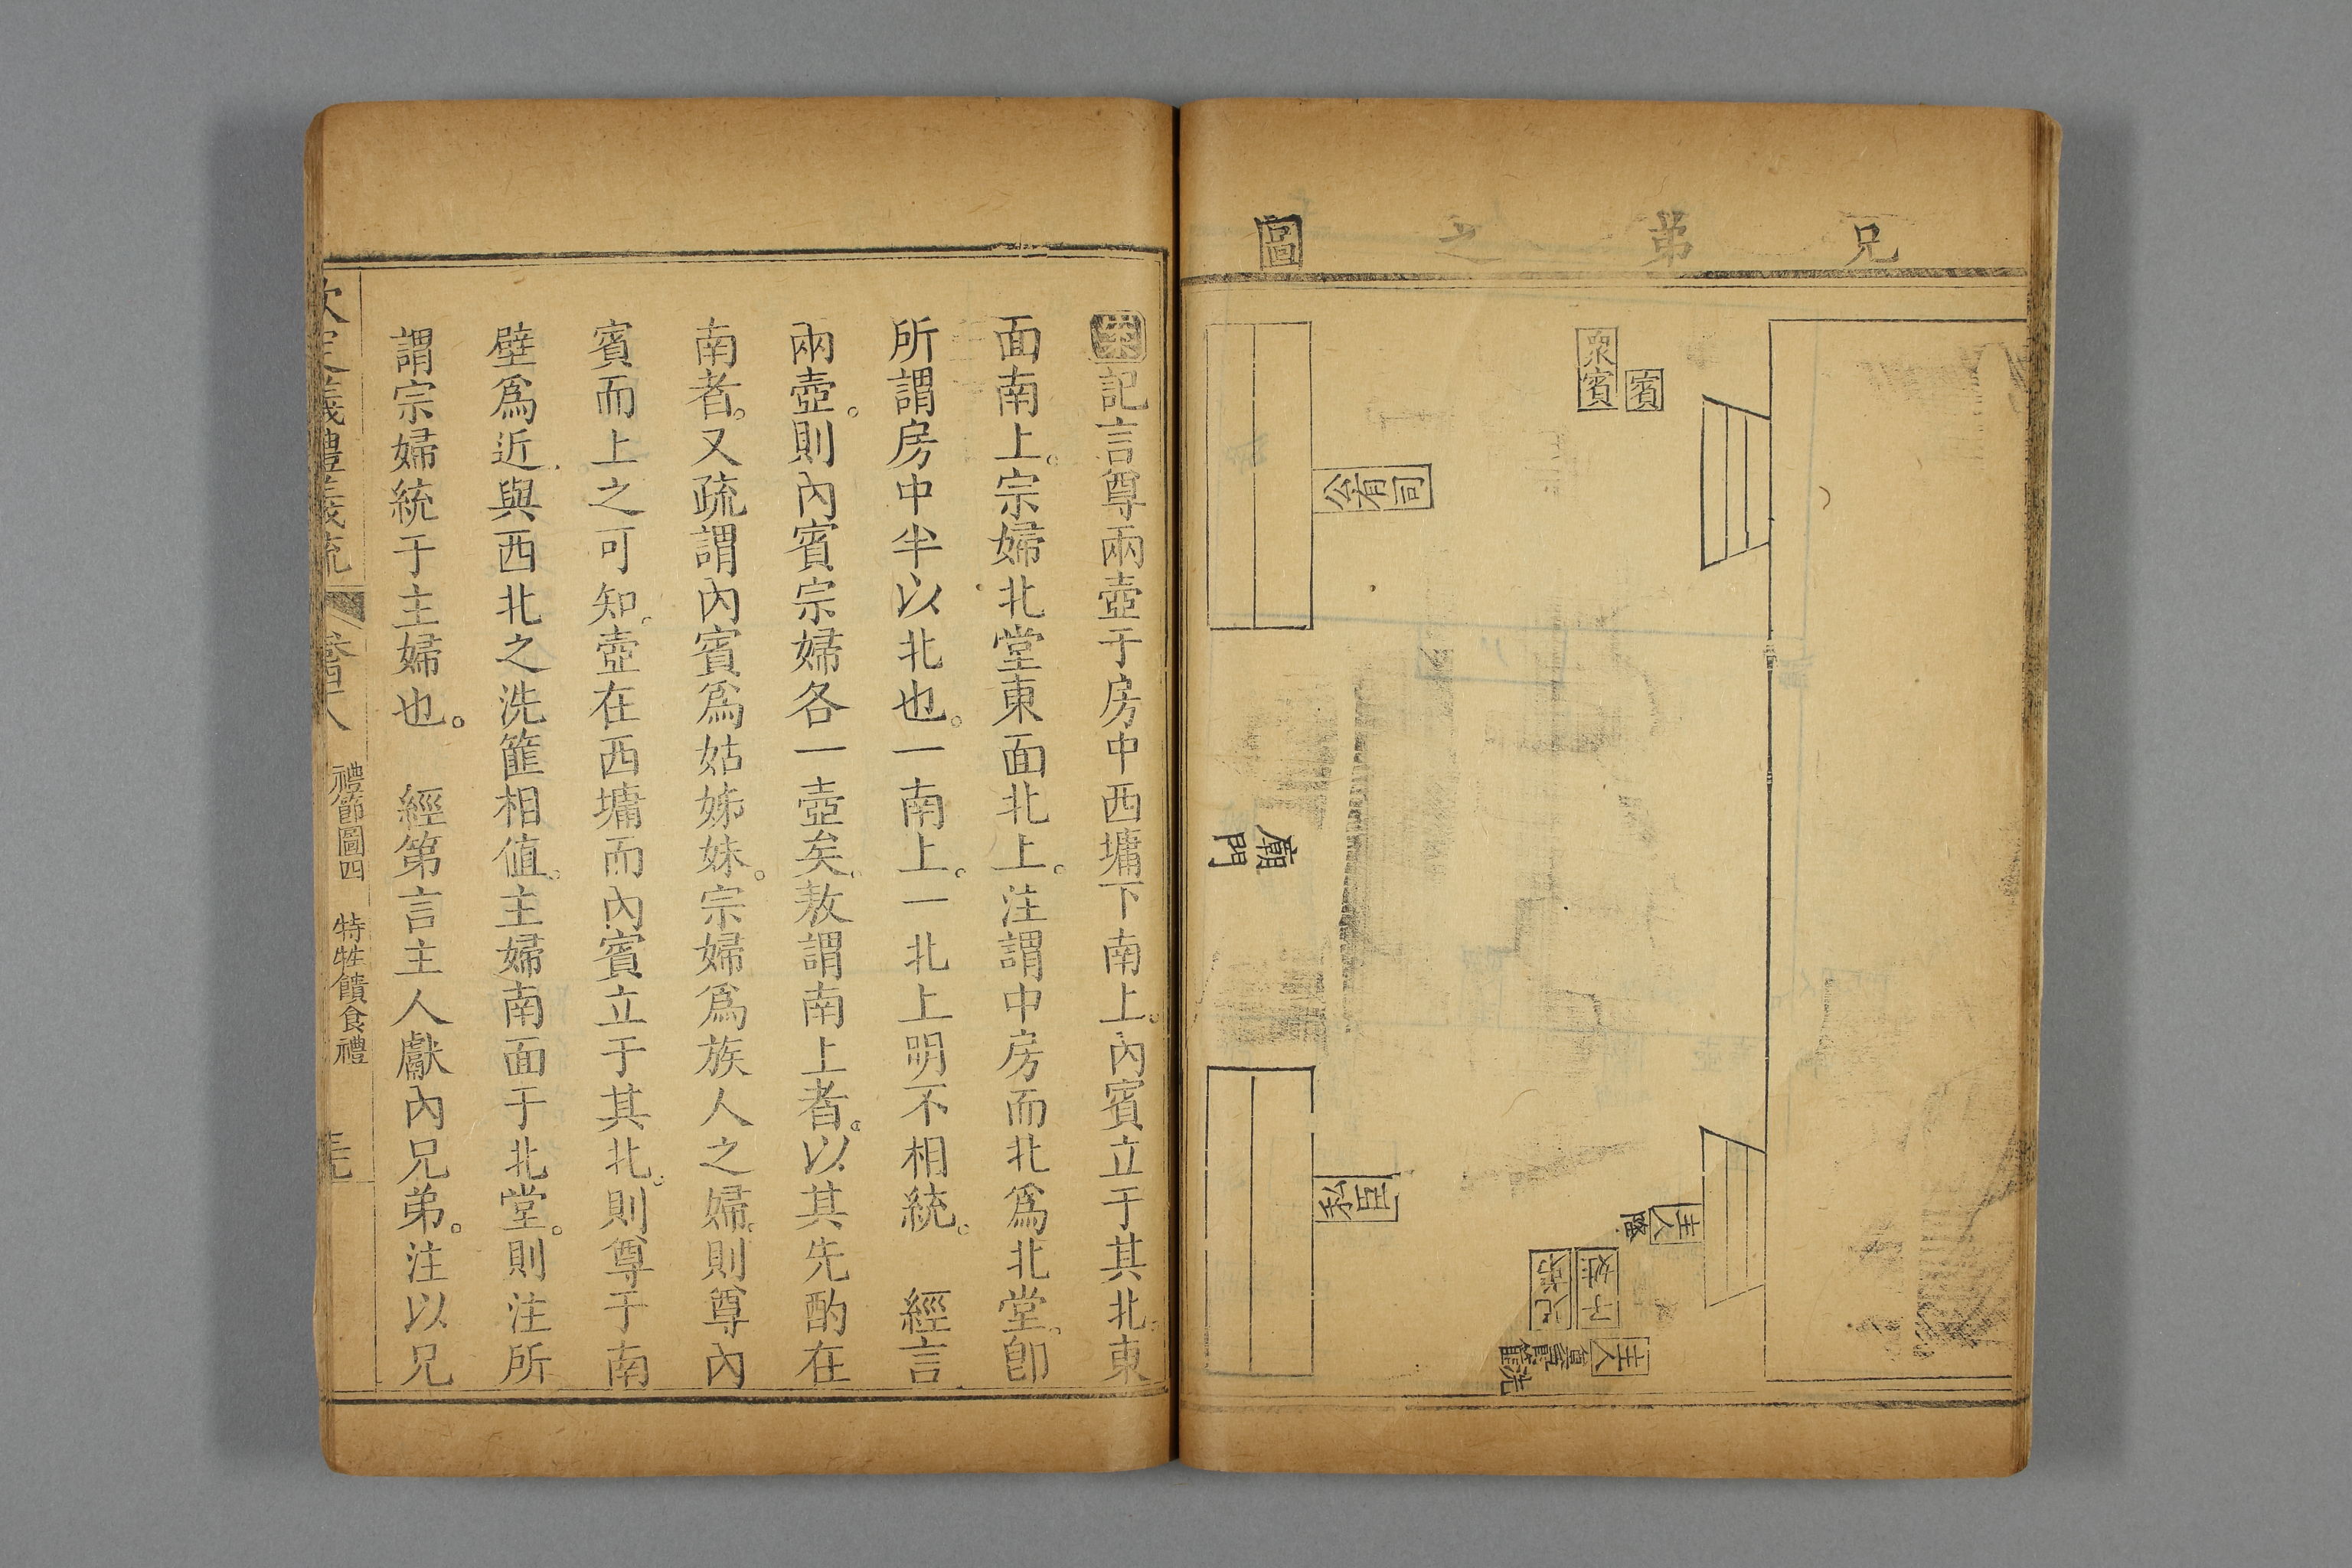 兄弟之圖
衆賓
賓
公有司
私臣
廟門
主人降
主人
記言尊兩壺于房中西墉下南上。內賓立于其北。東
面南上。宗婦北堂東面北上。注謂中房而北爲北堂。卽
所謂房中半以北也。一南上。一北上明不相統。 經言
兩壺。則內賓宗婦各一壺矣。敖謂南上者。以其先酌在
南者。又疏謂內賓爲姑姊妹。宗婦爲族人之婦。則尊內
賓而上之可知。壺在西墉而內賓立于其北。則尊于南
壁爲近。與西北之洗篚相值。主婦南面于北堂。則注所
謂宗婦統于主婦也。 經第言主人獻內兄弟。注以兄
欽定儀禮義疏 禮節圖四 特牲饋食禮